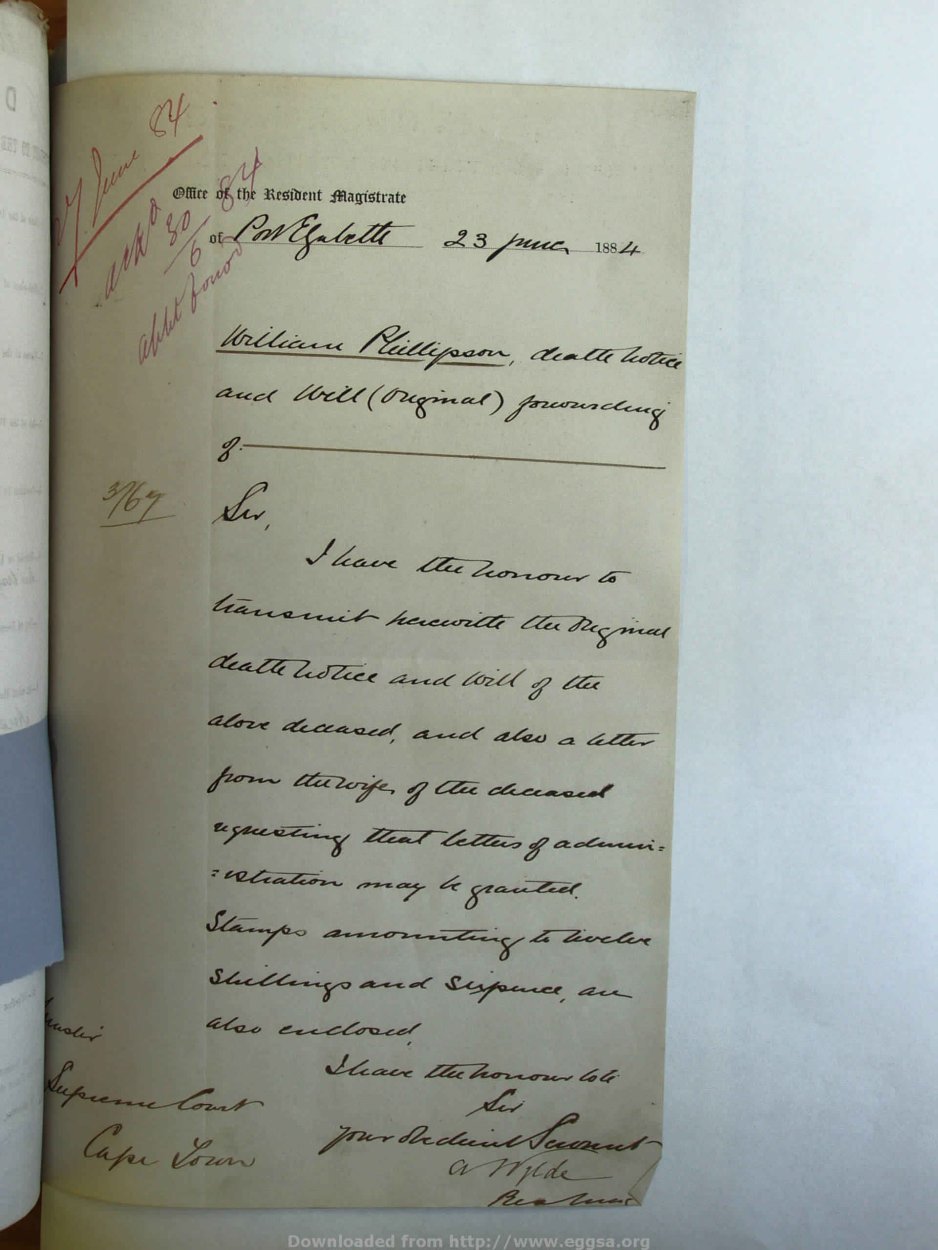 27 June 84
ackd 30/6 84
Office of the Resident Magistrate
of Port Elizabeth 23 June 1884
William Phillipson, death notice
and Will (Original) forwarding
of.
3/67
Sir,
I have the honour to
transmit herewith the Original
death notice and Will of the
above deceased, and also a letter
from the wife of the deceased
requesting that letters of admini=
=istration may be granted.
Stamps amounting to twelve
shillings and sixpence, are
also enclosed.
I have the honour to be
Sir
Your obedient Servant
A Wylde
Res Mag
Master
Supreme Court
Cape Town
Downloaded from http://www.eggsa.org